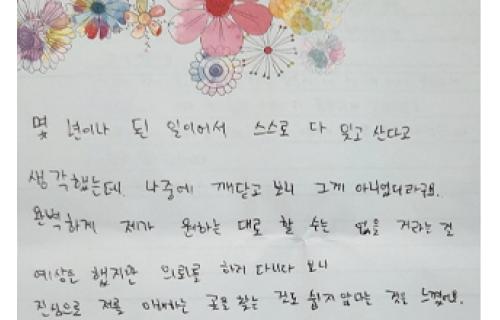 몇 년이나 된 일이어서 스스로 다 잊고 산다고
생각했는데. 나중에 깨닫고 보니 그게 아니었더라구요.
완벽하게 제가 원하는 대로 할 수는 없을 거라는 건
예상은 했지만 의뢰를 하러 다니다 보니
진심으로 저를 이해하는 곳을 찾는 것도 쉽지 않다는 것을 느꼈어요.